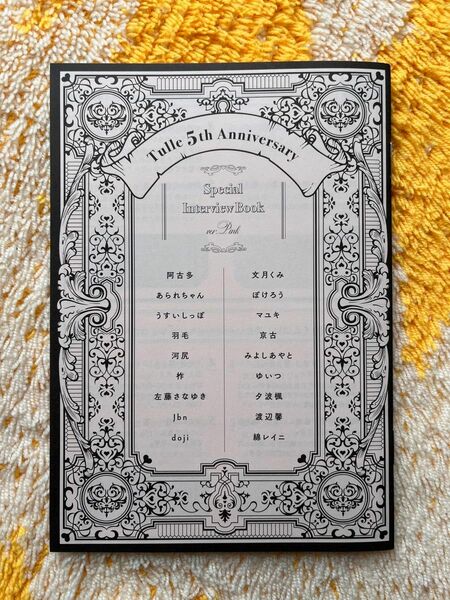 Tulle 5th Anniversary
Special
Interview Book
ver. Pink
阿古多
あられちゃん
うすいしっぽ
羽毛
河尻
柞
左藤さなゆき
Jbn
doji
文月くみ
ぽけろう
マユキ
京古
みよしあやと
ゆいつ
夕波楓
渡辺馨
綿レイニ